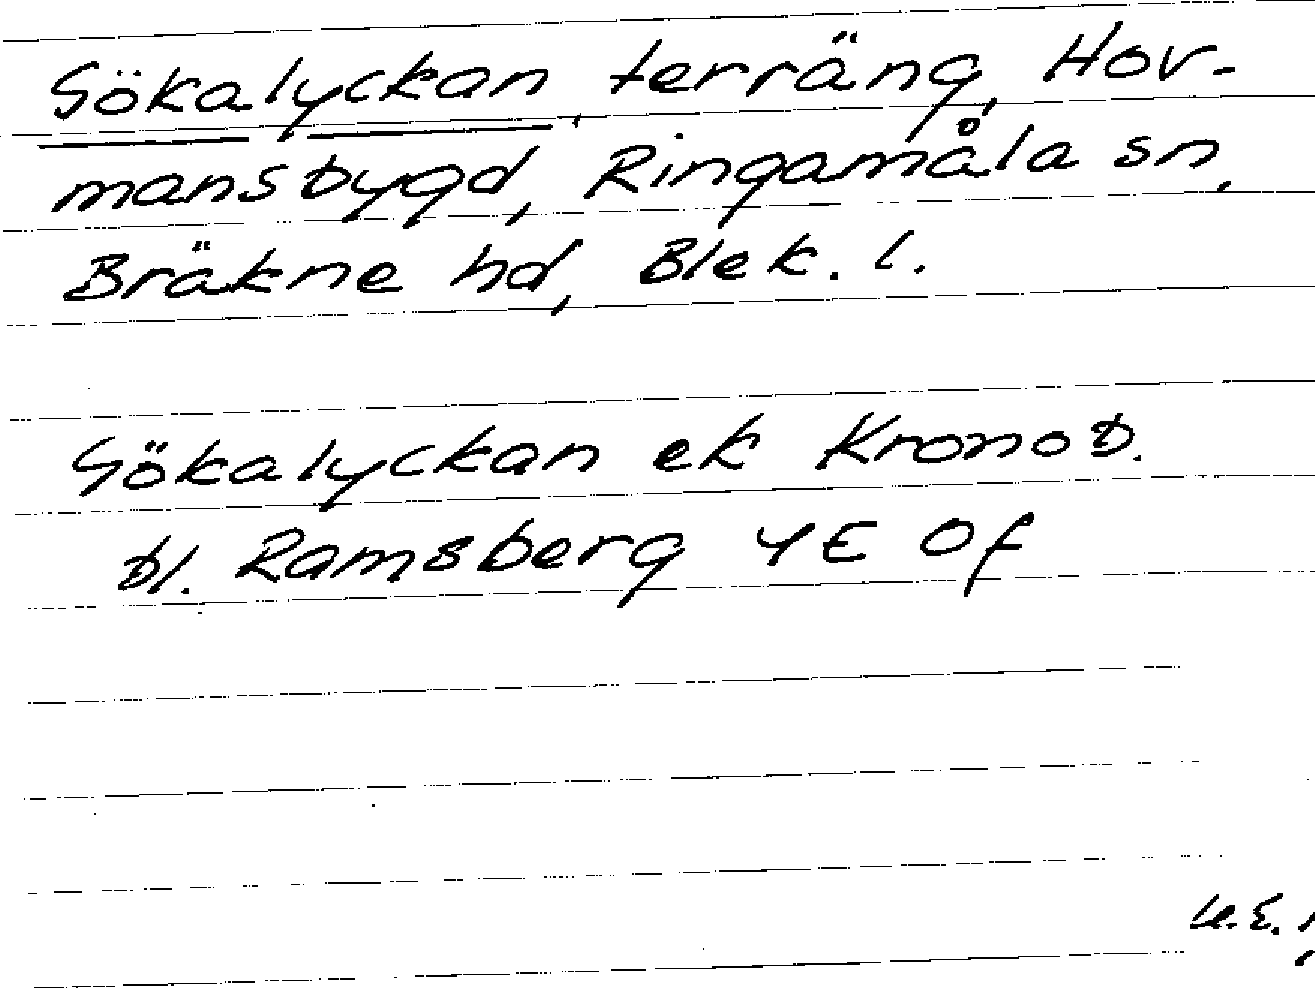 Sökalyckan, terräng, Hov-
mansbygd, Ringamåla sn,
Bräkne hd, Blek. l.
Sökalyckan ek Kronob.
bl. Ramsberg YE Of